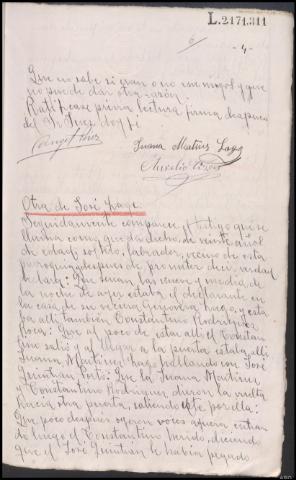 L.2171.311
6
-4-
Que no sabe si eran o no enemigos y que
no puede dar otra razón.
Ratificase previa lectura firma despues
del Sr Juez doy fé
Juana Martinez
Aurelio
Otra de José
Seguidamente comparece el testigo que se
como queda dicho, de veinte años
de edad, soltero, labrador, vecino de esta
parroquia, despues de prometer decir verdad
declara: Que serian las nueve y media de
la noche de ayer estaba el declarante en
la casa de su vecina y esta
ba alli tambien Constantino Rodriguez
Roca: Que al poco de estar alli el Constan
tino salió y al llegar a la puerta estaba alli
Juana Martinez hablando con José
Quintian Que la Juana Martinez
y Constantino Rodriguez dieron la vuelta
otra puerta, saliendo este por ella:
Que poco despues oyeron voces afuera entran
do luego el Constantino herido, diciendo
que el José Quintian le habia pegado